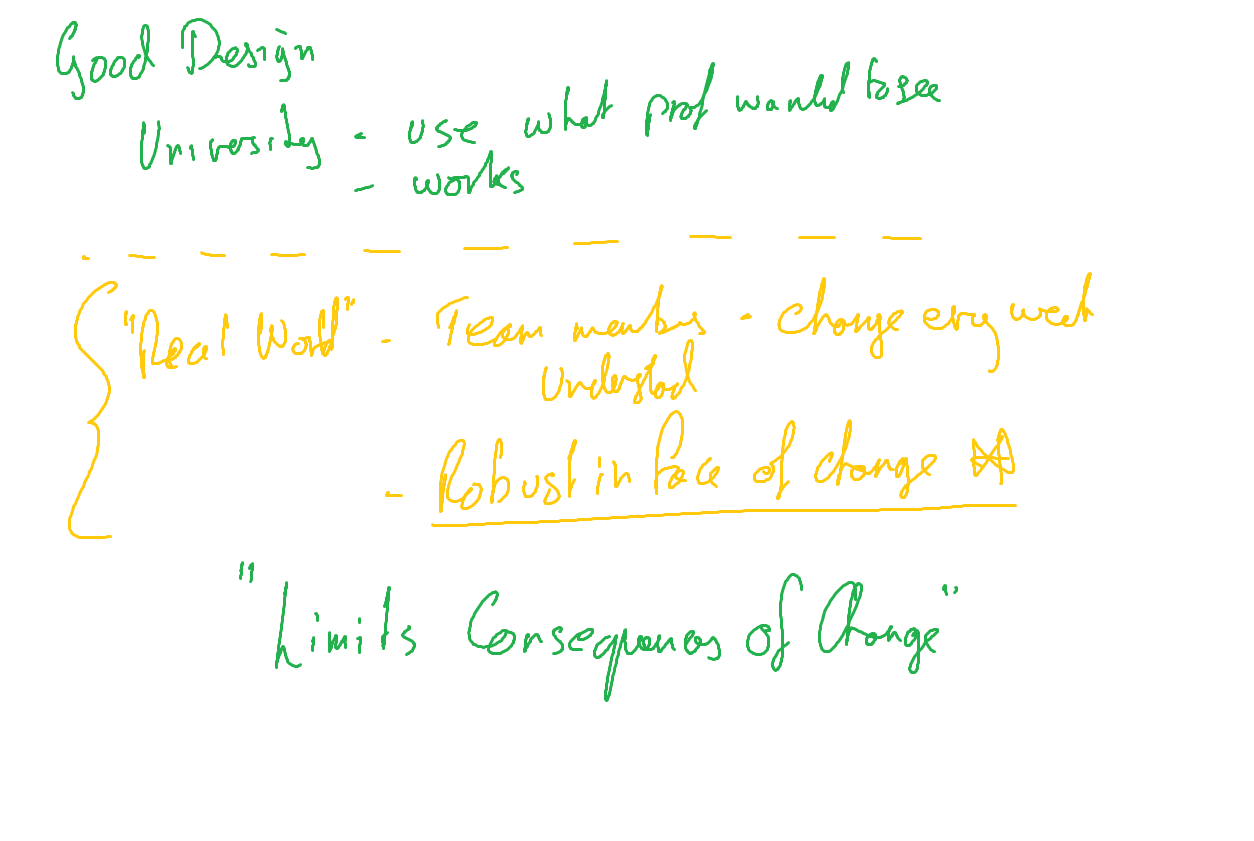 Good Design
University - use what prof wanted to see
- works
"Real World" - Team members - change every week
understood
- Robust in face of change
"Limits Consequences of Change"